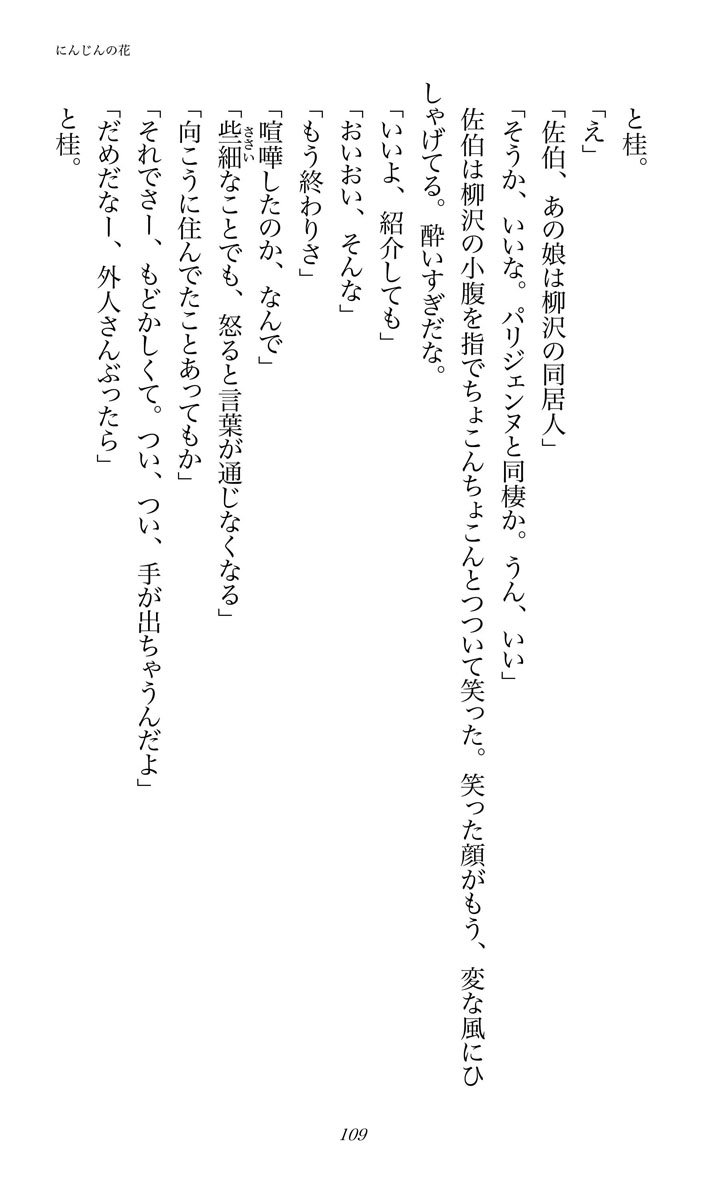 にんじんの花
と桂。
「え」
「佐伯、あの娘は柳沢の同居人」
「そうか、いいな。パリジェンヌと同棲か。うん、いい」
佐伯は柳沢の小腹を指でちょこんちょこんとつついて笑った。笑った顔がもう、変な風にひ
しゃげてる。酔いすぎだな。
「いいよ、紹介しても」
「おいおい、そんな」
「もう終わりさ」
「喧嘩したのか、なんで」
「些細ささいなことでも、怒ると言葉が通じなくなる」
「向こうに住んでたことあってもか」
「それでさー、もどかしくて。つい、つい、手が出ちゃうんだよ」
「だめだなー、外人さんぶったら」
と桂。
109